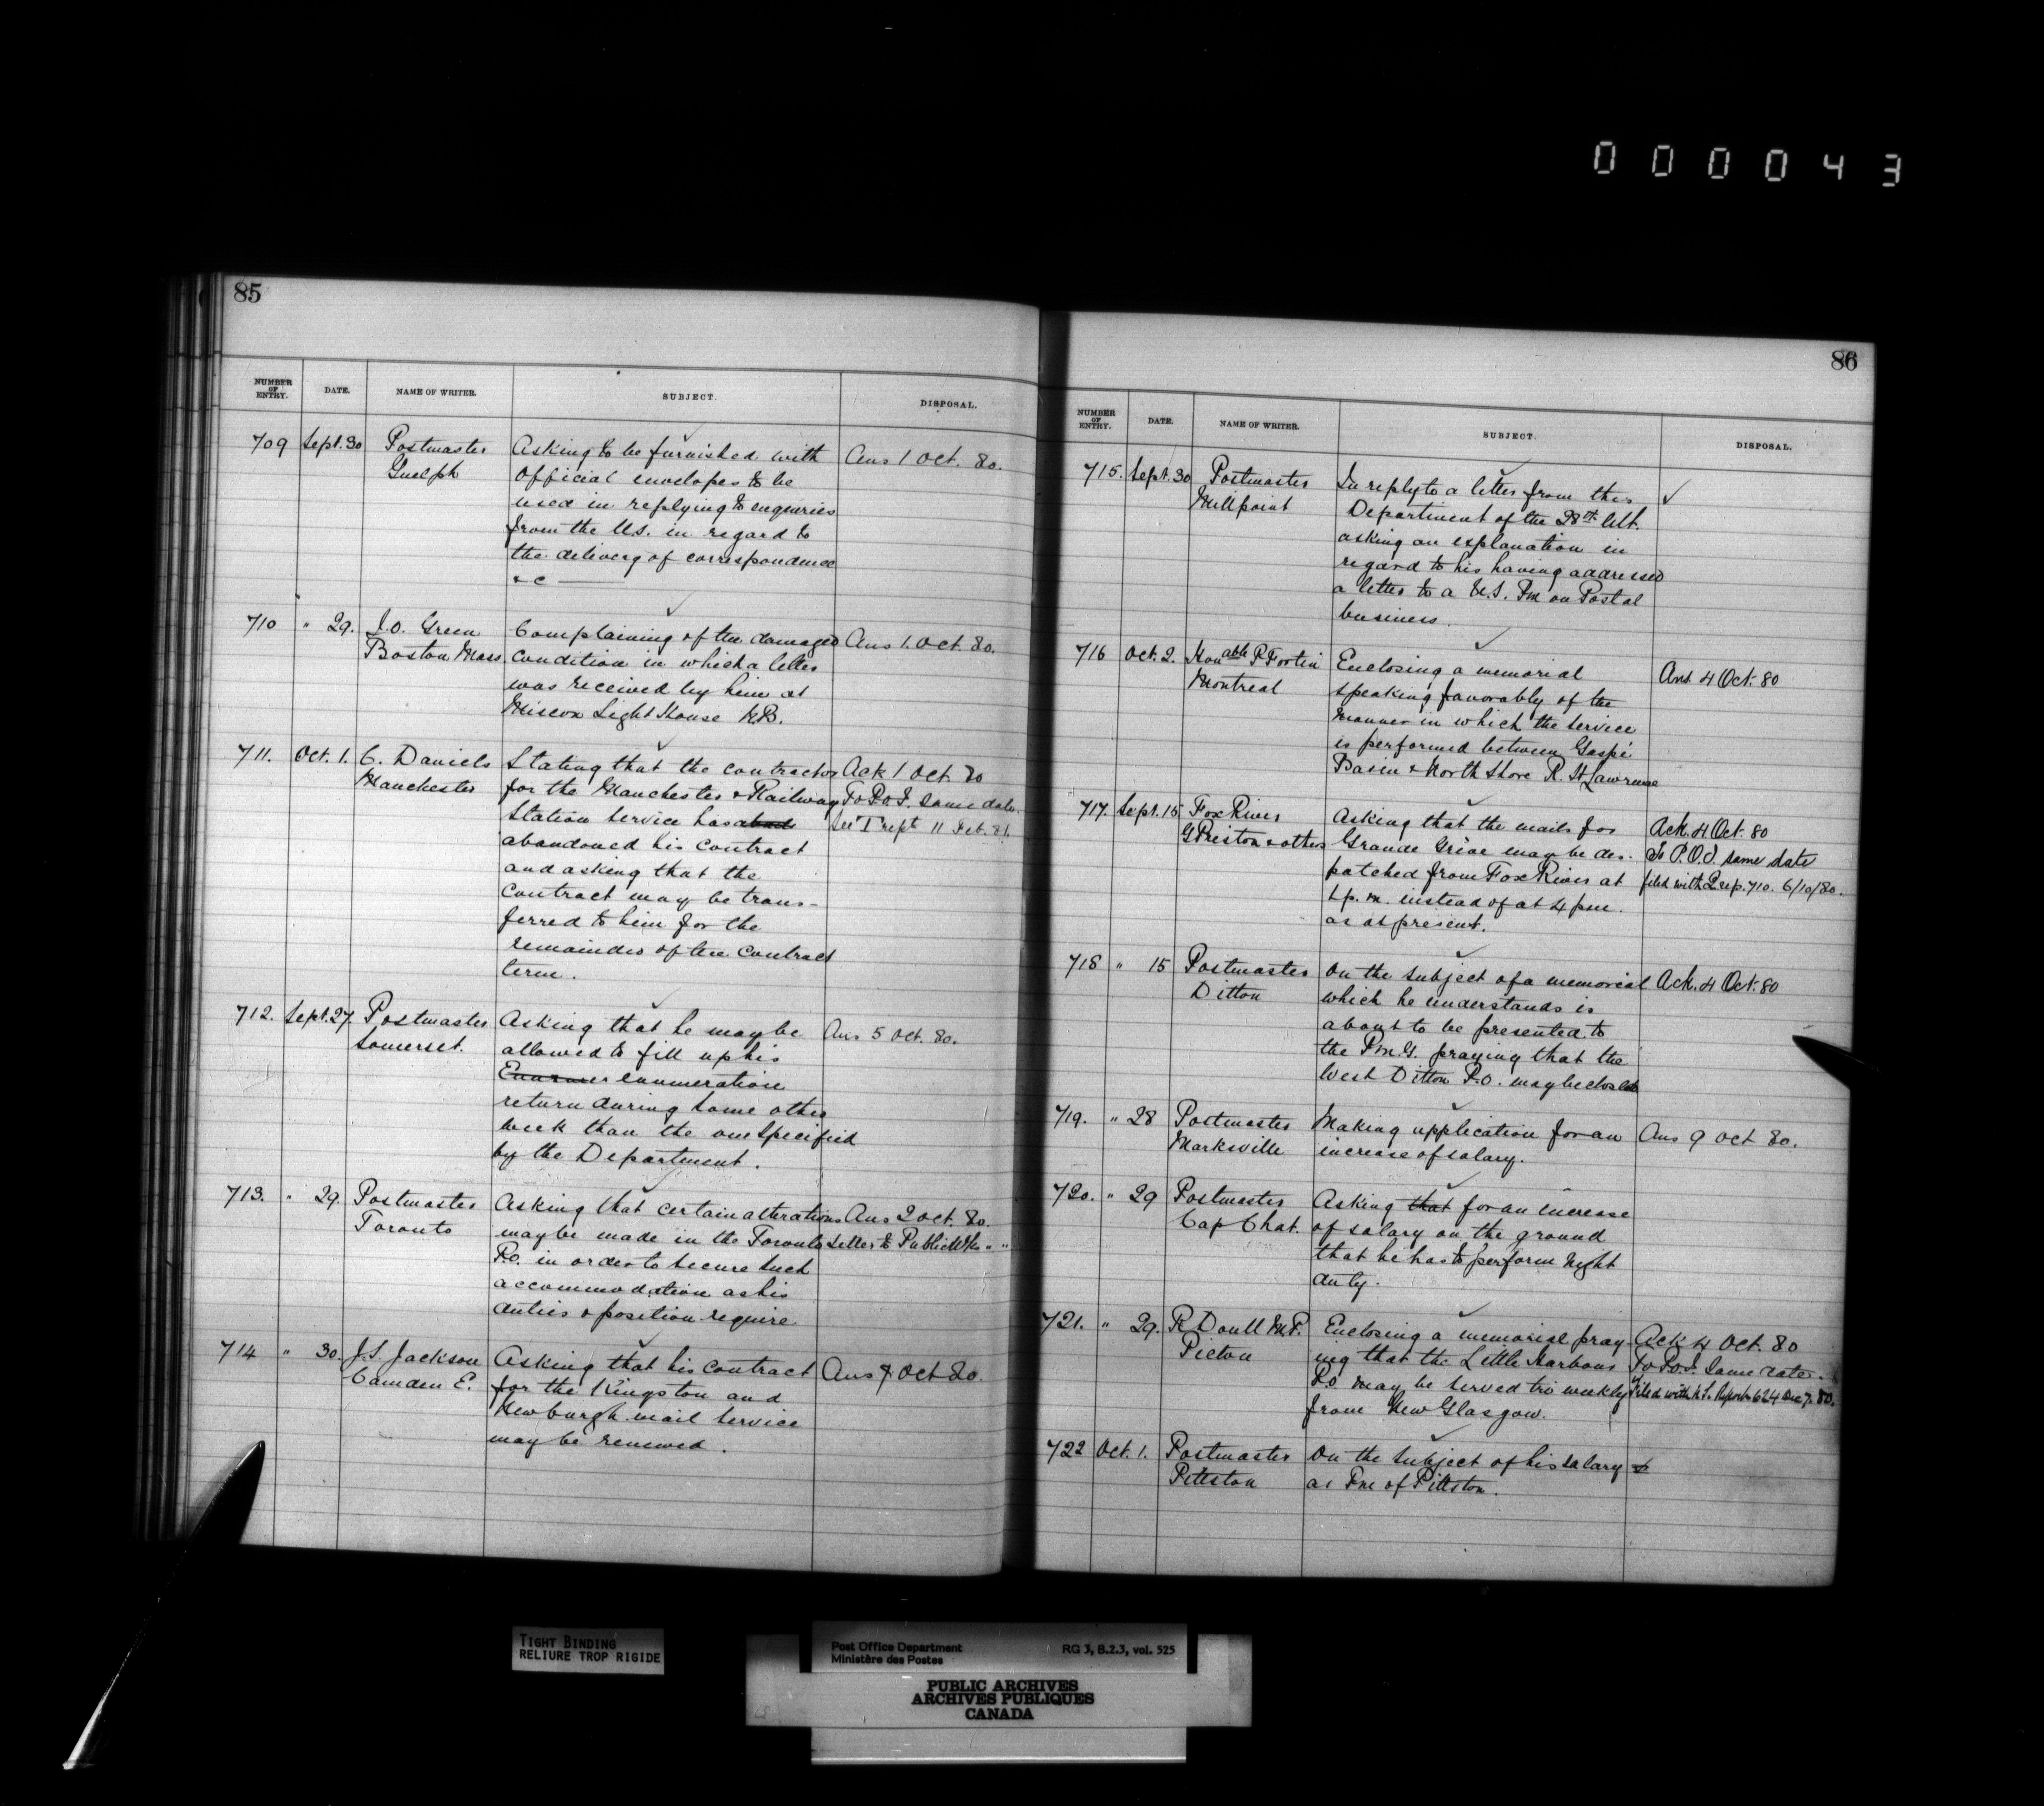 000043
85
NUMBER OF ENTRY. DATE. NAME OF WRITER. SUBJECT. DISPOSAL.
709 Sept. 30 Postmaster Asking to be furnished with Ans 1 Oct. 80.
Guelph Official envelopes to be
used in replying to enquiries
from the U.S. in regard to
the delivery of correspondence
&c
710 " 29. J.O. Green Complaining of the damaged Ans 1. Oct. 80.
Boston Mass condition in which a letter
was received by him at
Miscou Light House N.B.
711. Oct. 1. C. Daniels Stating that the contractor Ack 1 Oct. 80
Manchester for the Manchester & Railway To P.O.I. same date.
Station service has aband See T rept 11 Feb. 81.
abandoned his contract
and asking that the
contract may be trans-
ferred to him for the
remainder of the contract
term.
712. Sept. 27. Postmaster Asking that he may be Ans 5 Oct. 80.
Somerset. allowed to fill up his
enumeration
return during some other
week than the one specified
by the Department.
713. " 29. Postmaster Asking that certain alterations Ans 2 Oct. 80.
Toronto may be made in the Toronto Letter to Public Wks " "
P.O. in order to secure such
accommodation as his
duties & position require
714 " 30. J.S. Jackson Asking that his contract Ans 7 Oct 80.
Camden E. for the Kingston and
Newburgh mail service
may be renewed.
86
NUMBER OF ENTRY. DATE. NAME OF WRITER. SUBJECT. DISPOSAL.
715. Sept. 30 Postmaster In reply to a letter from this ✓
Millpoint Department of the 28th Ult.
asking an explanation in
regard to his having addressed
a letter to a U.S. Pm on Postal
business.
716 Oct. 2. Honable P Fortin Enclosing a memorial Ans 4 Oct. 80
Montreal speaking favorably of the
manner in which the service
is performed between Gaspé
Basin & North Shore R. St Lawrence
717. Sept. 15 Fox River Asking that the mails for Ack. 4 Oct. 80
G Priston & others Grande Grève may be des- To P.O.I. same date
patched from Fox River at filed with Q rep. 710. 6/10/80.
1 p.m. instead of at 4 pm.
as at present.
718 " 15 Postmaster On the subject of a memorial Ack. 4 Oct. 80
Ditton which he understands is
about to be presented to
the P.M.G. praying that the
West Ditton P.O. may be closed
719. " 28 Postmaster Making application for an Ans 9 Oct 80.
Marksville increase of salary.
720. " 29 Postmaster Asking that for an increase
Cap Chat. of salary on the ground
that he has to perform night
duty.
721. " 29. R Doull M.P. Enclosing a memorial pray- Ack 4 Oct. 80
Pictou ing that the Little Harbour To P.O.I. Same date.
P.O may be served tri weekly Filed with N.S. Report 624 Dec 7. 80.
from New Glasgow.
722 Oct. 1. Postmaster On the subject of his salary
Pittston as Pm of Pittston.
TIGHT BINDING
RELIURE TROP RIGIDE
Post Office Department RG 3, B.2.3, vol. 525
Ministère des Postes
PUBLIC ARCHIVES
ARCHIVES PUBLIQUES
CANADA